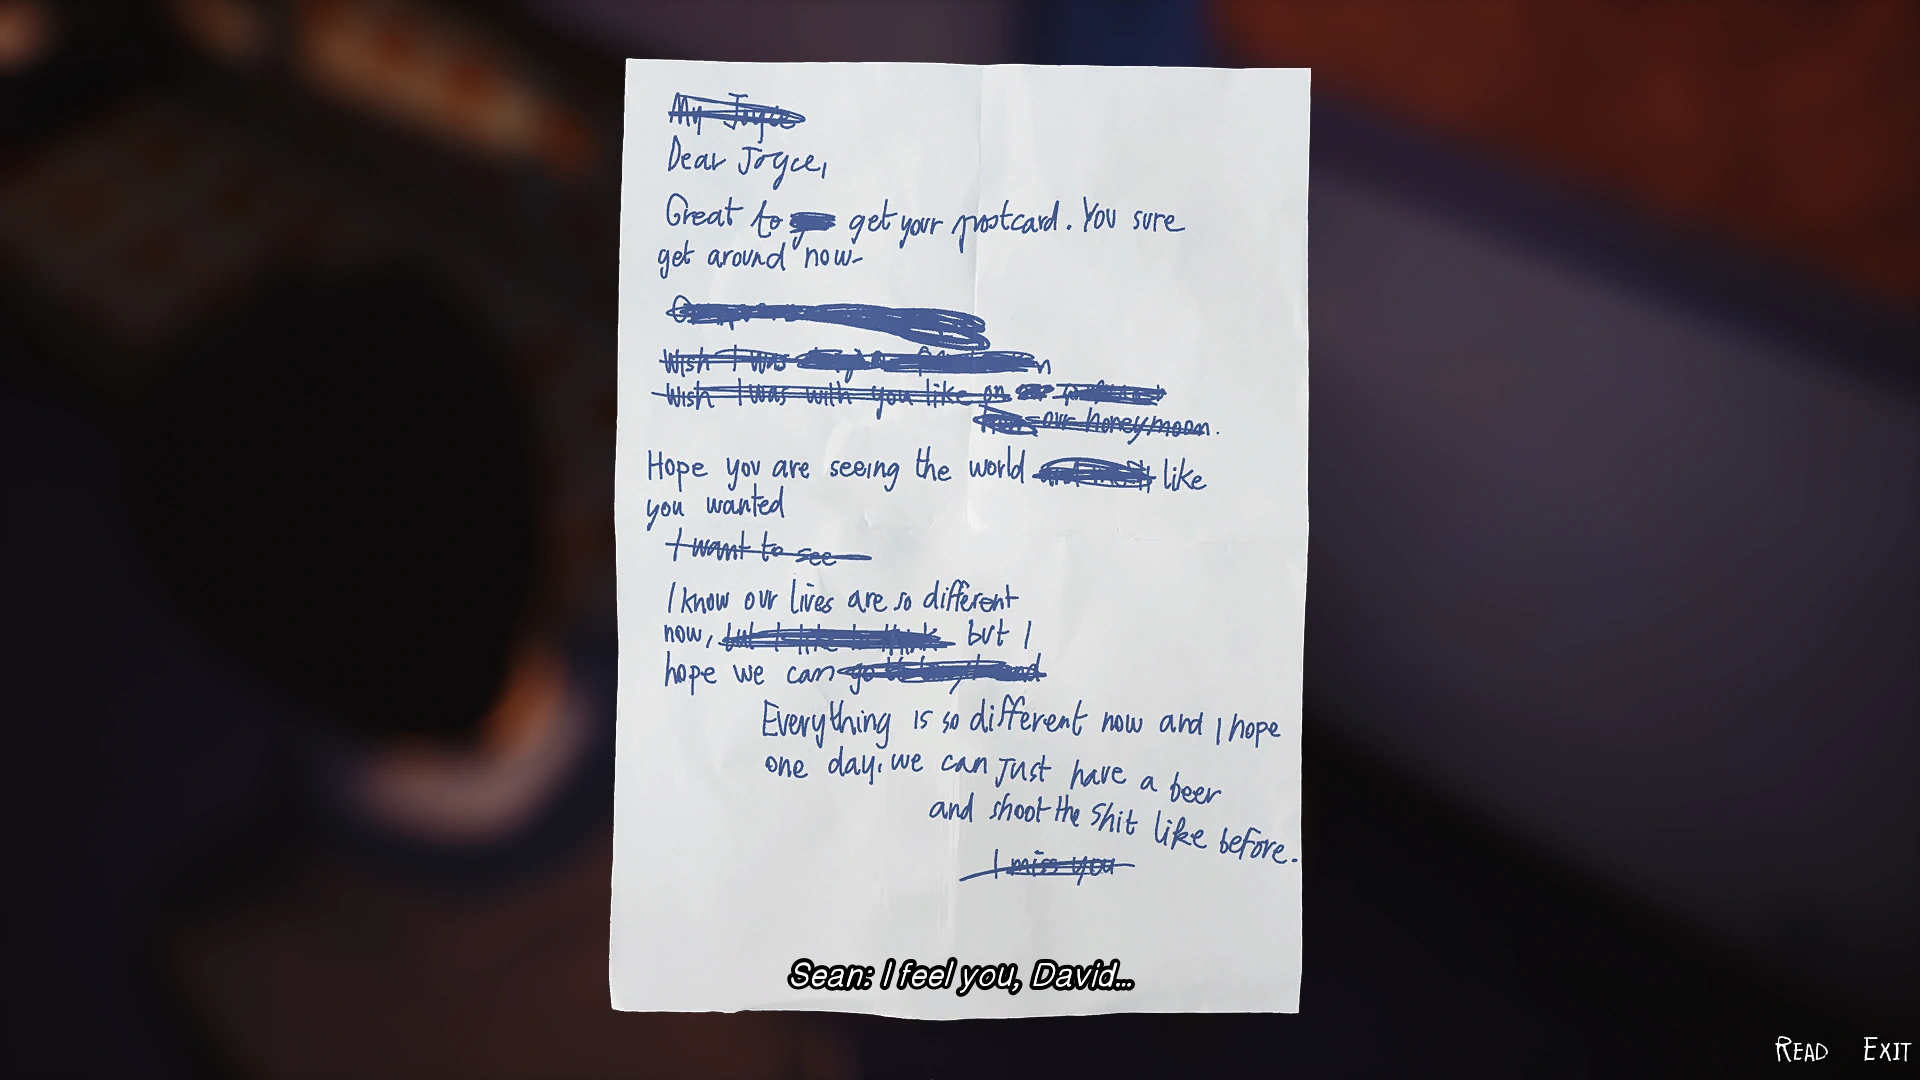 My Joyce
Dear Joyce,
Great to get your postcard. You sure
get around now-
Wish I was
Wish I was with you like on
our honeymoon.
Hope you are seeing the world like
you wanted
I want to see
I know our lives are so different
now, but I like to think but I
hope we can go
Everything is so different now and I hope
one day, we can just have a beer
and shoot the shit like before.
I miss you
Sean: I feel you, David...
READ EXIT